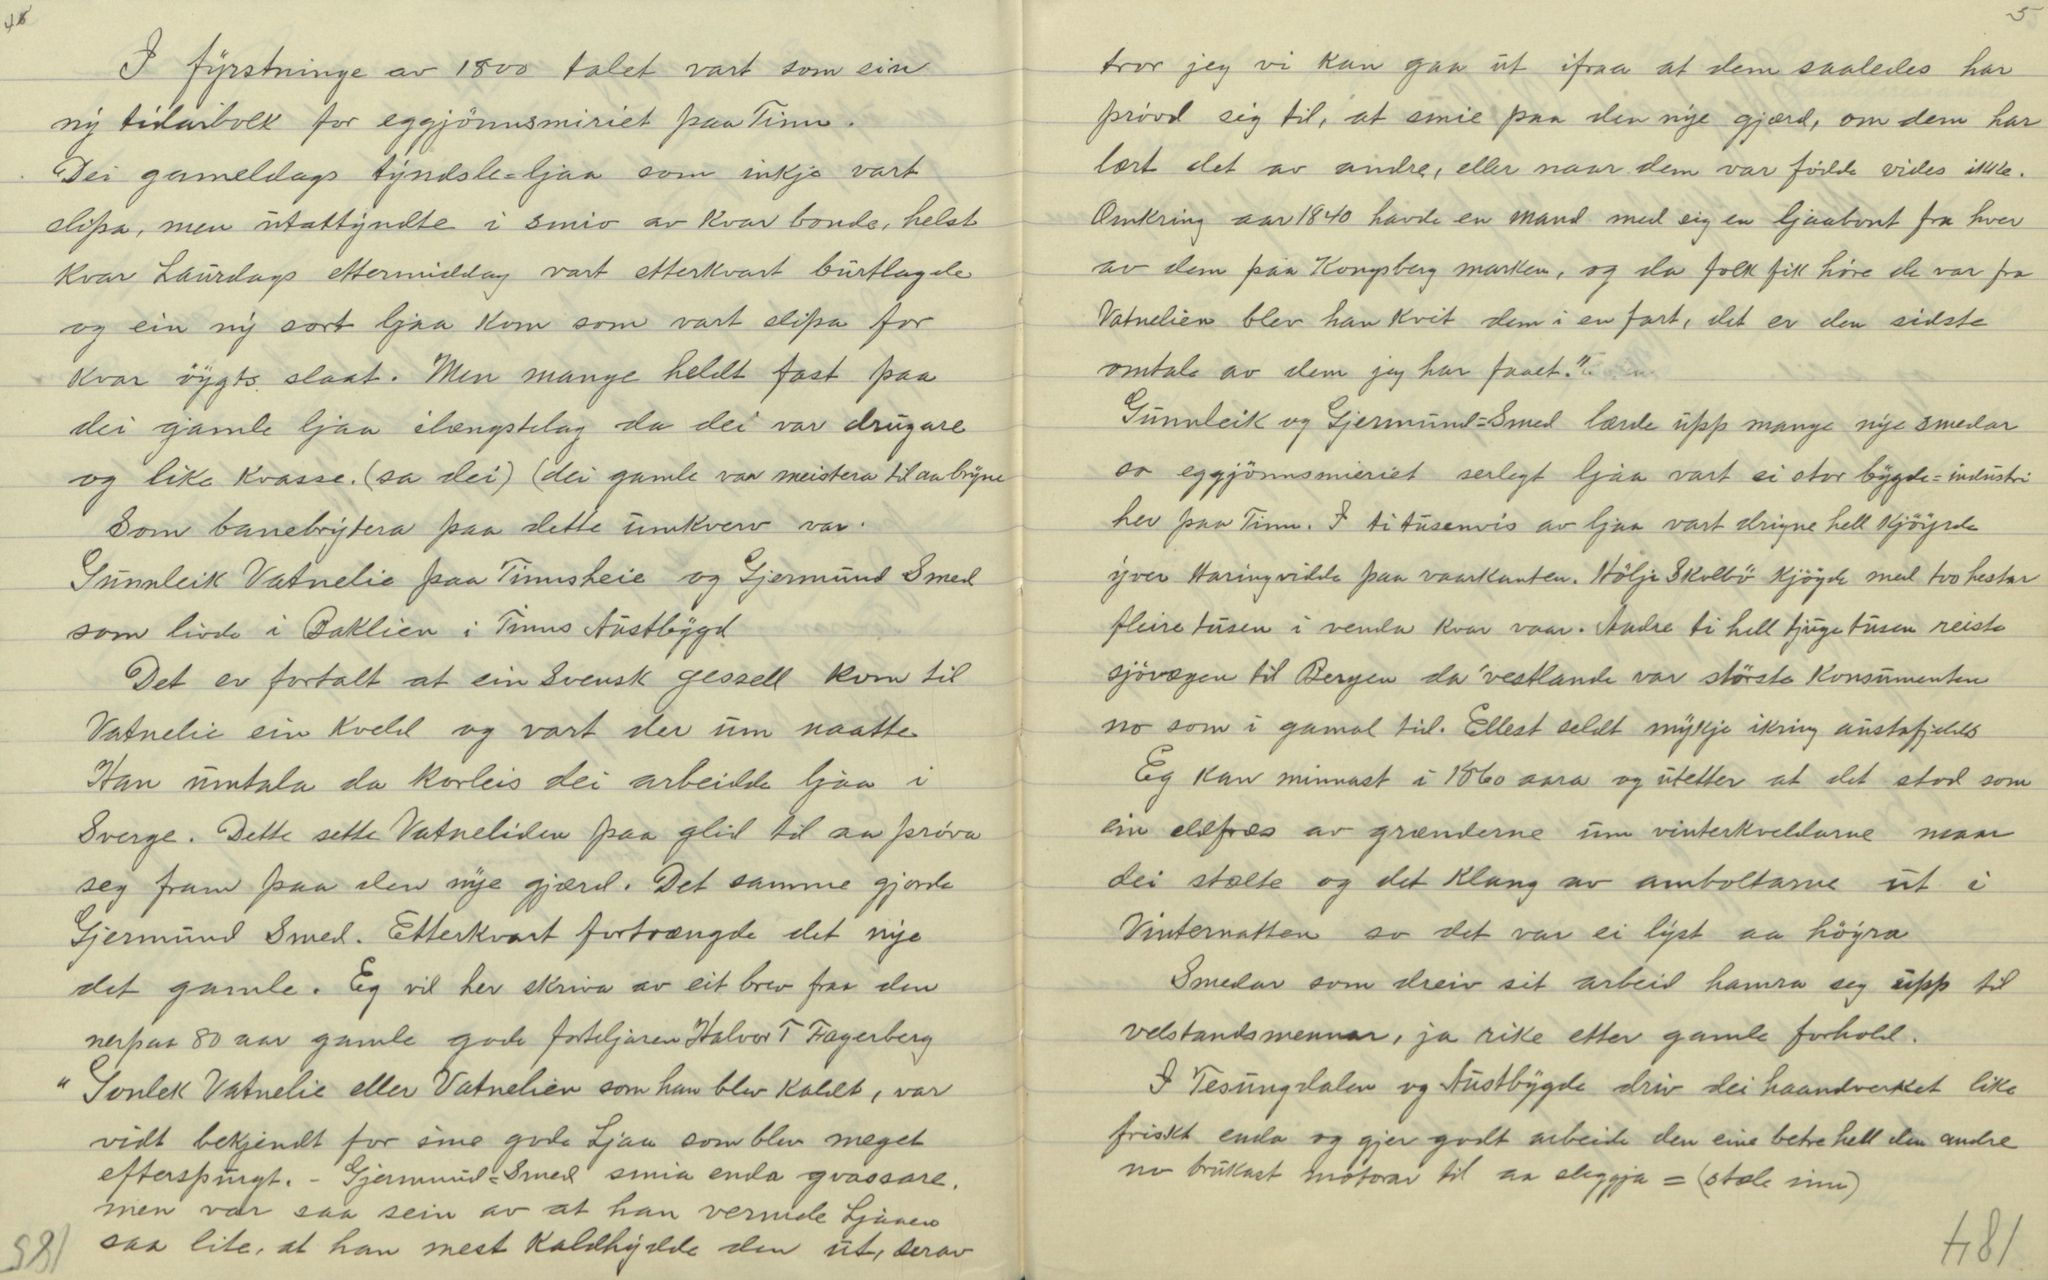 48
I fÿrstninge av 1800 talet vart som ein
nÿ tidarbolk for eggjönnsmiriet paa Tinn.
Dei gameldags tÿndsle=ljaa som inkje vart
slipa, men utattÿndte i smio av kvar bonde, helst
kvar Laurdags ettermiddag vart etterkvart burtlagde
og ein nÿ sort ljaa kom som vart slipa for
kvar öÿgts slaat. Men mange heldt fast paa
dei gamle ljaa ilængstelag da dei var drugare
og like kvasse. (sa dei) (dei gamle var meistera til aa brÿne
Som banebrÿtera paa dette umkverv var.
Gunnleik Vatnelie paa Tinnsheie og Gjermund Smed
som livde i Baklien i Tinns Austbÿgd
Det er fortalt at ein Svensk gessell kom til
Vatnelie ein kveld og vart der um naatte
Han umtala da korleis dei arbeidde ljaa i
Sverge. Dette sette Vatneliden paa glid til aa pröva
seg fram paa den nÿe gjærd. Det samme gjorde
Gjermund Smed. Etterkvart fortrængde det nÿe
det gamle. Eg vil her skriva av eit brev fraa den
nerpaa 80 aar gamle gode forteljaren Halvor T Fagerberg
"Gonlek Vatnelie eller Vatnelien som han blev kaldt, var
vidt bekjendt for sine gode Ljaa som blev meget
efterspurgt. - Gjermund=Smed smia enda gvassare,
men var saa sein av at han vermde Ljaaen
saa lite, at han mest kaldhÿdde den ut, derav
185
5
tror jeg vi kan gaa ut ifraa at dem saaledes har
prövd sig til, at smie paa den nÿe gjærd, om dem har
lært det av andre, eller naar dem var födde vides ikke.
Omkring aar 1840 havde en Mand med sig en ljaabunt fra hver
av dem paa Kongsberg marken, og da folk fik höre de var fra
Vatnelien blev han kvit dem i en fart, det er den sidste
omtale av dem jeg har faaet."
Gunnleik og Gjermund=Smed lærde upp mange nÿe smedar
so eggjönnsmieriet serlegt ljaa vart ei stor bÿgde=industri
her paa Tinn. I ti tusenvis av ljaa vart drigne hell kjöÿrde
ÿver Haringvidda paa vaarkanten. Hölje Skolbö kjöÿde med tvo hestar
fleire tusen i venda kvar vaar. Andre ti hell tjuge tusen reiste
sjövegen til Bergen da vestlande var störste konsumenten
no som i gamal tid. Ellest seldt mÿkje ikring austafjelds
Eg kan minnast i 1860 aara og utetter at det stod som
ein eldfræs av grænderne um vinterkveldarne naar
dei stælte og det klang av amboltarne ut i
Vinternatten so det var ei lÿst aa höÿra
Smedar som dreiv sit arbeid hamra seg upp til
velstandsmennar, ja rike etter gamle forhold.
I Tesungdalen og Austbÿgde driv dei haandverket like
friskt enda og gjer godt arbeide den eine betre hell den andre
no brukast motorar til aa sleggja = (stæle inn)
184